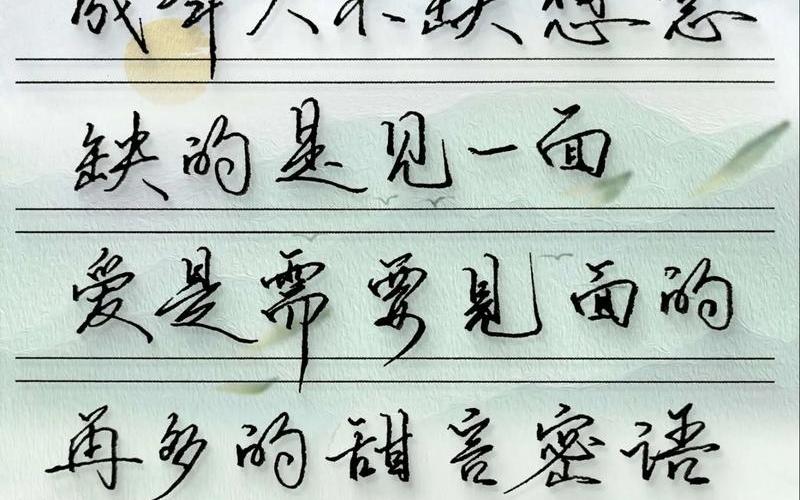 成年人不缺想念
缺的是见一面
爱是需要见面的
再多的甜言密语